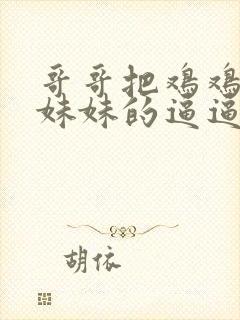 哥哥把鸡鸡
妹妹的逼逼
胡依